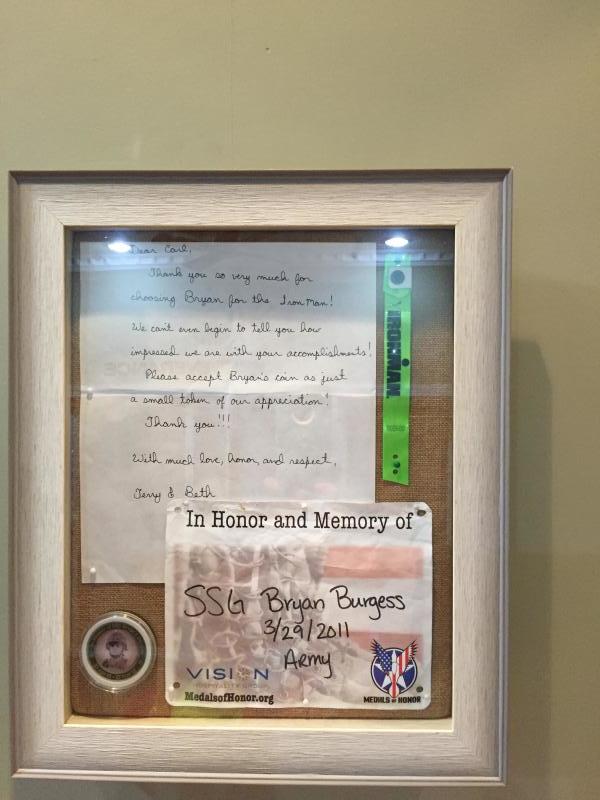 Dear Earl,
Thank you so very much for
choosing Bryan for the Iron Man!
We can't even begin to tell you how
impressed we are with your accomplishments!
Please accept Bryan's coin as just
a small token of our appreciation!
Thank you!!!
With much love, honor, and respect,
Terry & Beth
IRONMAN
In Honor and Memory of
SSG Bryan Burgess
3/29/2011
Army
VISION
HOSPITALITY GROUP
MedalsofHonor.org
MEDALS OF HONOR